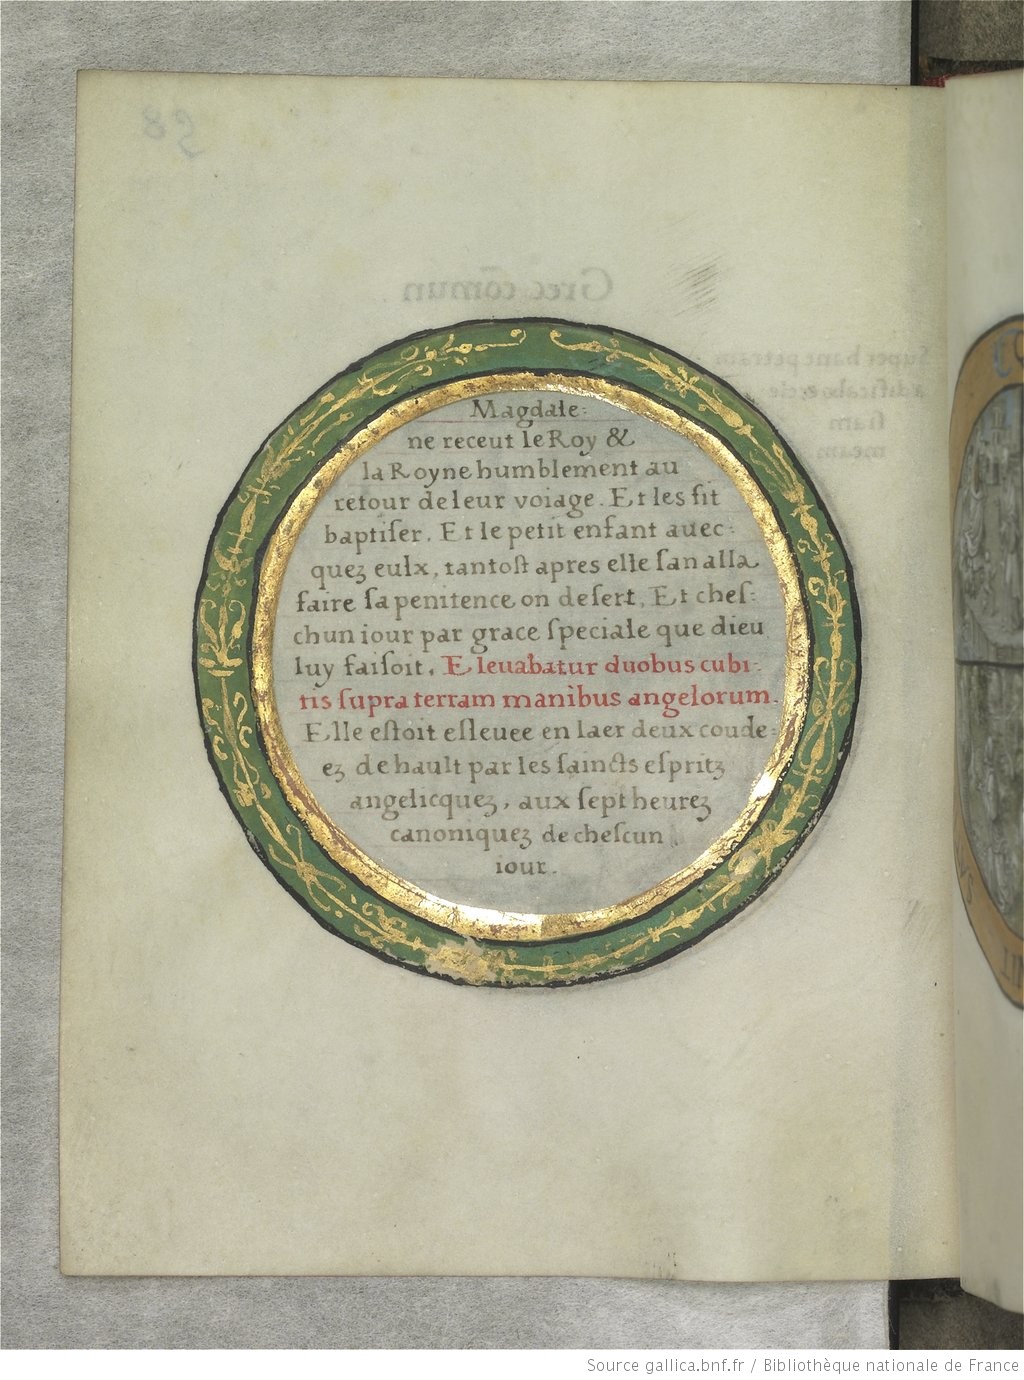 Magdale:
ne receut le Roy &
la Royne humblement au
retour de leur voiage. Et les fit
baptiſer. Et le petit enfant auec:
quez eulx, tantoſt apres elle ſan alla
faire ſa penitence on deſert. Et cheſ:
chun iour par grace ſpeciale que dieu
luy faiſoit. Eleuabatur duobus cubi:
tis ſupra terram manibus angelorum.
Elle eſtoit eſleuee en laer deux coude:
ez de hault par les ſaincts eſpritz
angelicquez, aux ſept heurez
canoniquez de cheſcun
iour.
Grec cōmun
Super hanc petram
ſiam
meam
Source gallica.bnf.fr / Bibliothèque nationale de France